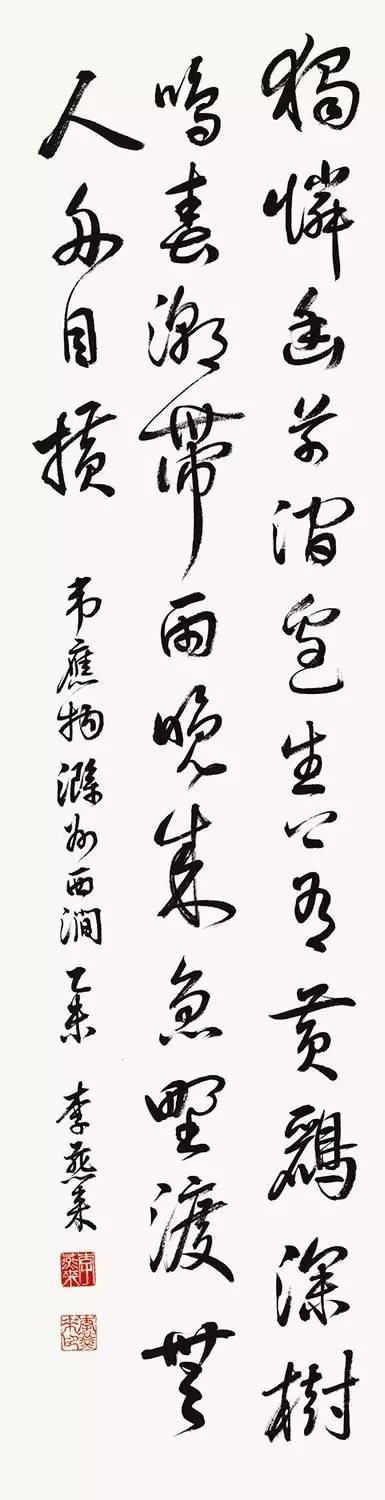 獨憐幽草澗邊生上有黃鸝深樹
鳴春潮帶雨晚來急野渡無
人舟自橫
韋應物滁州西澗 乙未 李燕來